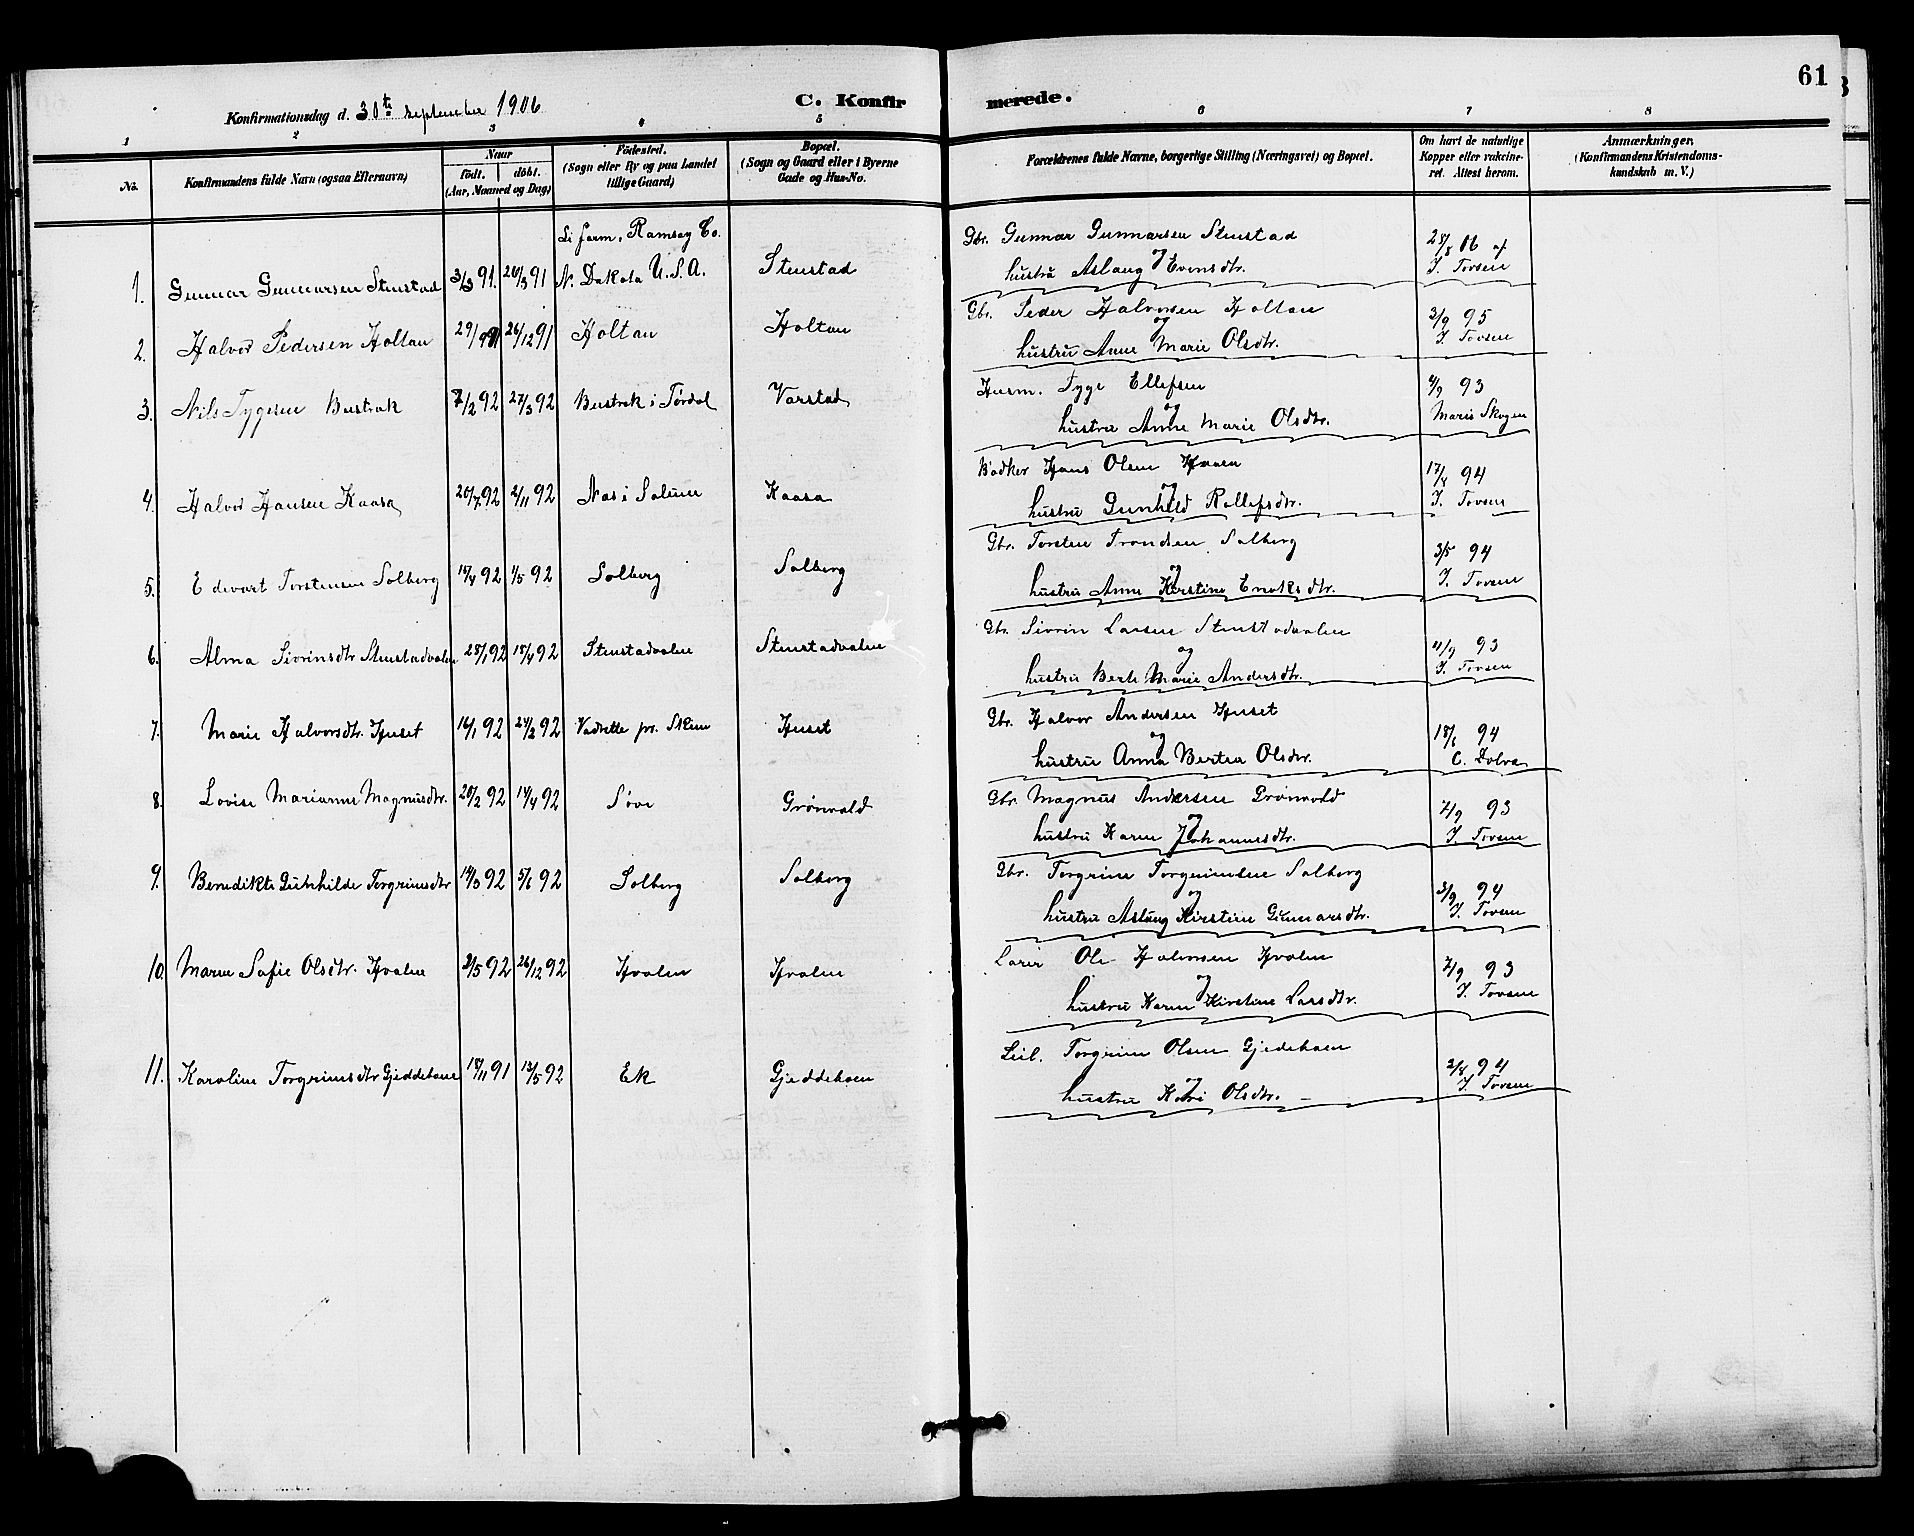 61
Konfirmationsdag d. 30te september 1906
C. Konfirmerede.
1 2 3 4 5 6 7 8
No.
Konfirmandens fulde Navn (ogsaa Efternavn)
Naar
født. døbt.
(Aar, Maaned og Dag)
Fødested.
(Sogn eller By og paa Landet
tillige Gaard)
Bopæl.
(Sogn og Gaard eller i Byerne
Gade og Hus-No.
Forældrenes fulde Navne, borgerlige Stilling (Næringsvei) og Bopæl.
Om havt de naturlige
Kopper eller vakcine-
ret. Attest herom.
Anmærkninger.
(Konfirmandens Kristendoms-
kundskab m. V.)
1. Gunnar Gunnarsen Stenstad 3/3 91. 26/3 91 Li farm, Ramsey Co.
N. Dakota U.S.A. Stenstad Gbr. Gunnar Gunnarsen Stenstad
og
hustru Aslaug Evensdtr. 28/8 06 af
J. Tovsen
2. Halvor Pedersen Holtan 29/9 91 26/12 91 Holtan Holtan Gbr. Peder Halvorsen Holtan
og
hustru Anne Marie Olsdtr. 3/9 95
J. Tovsen
3. Nils Tygesen Bustrak 7/2 92 27/3 92 Bustrak i Tørdal Varstad Husm. Tyge Ellefsen
og
hustru Anne Marie Olsdtr. 4/9 93
Maris Skogen
4. Halvor Hansen Kaasa 20/7 92 2/11 92 Næs i Solum Kaasa Bødker Hans Olsen
og
hustru Gunhild Rollefsdtr. 17/8 94
J. Tovsen
5. Edvart Torstensen Solberg 18/4 92 1/5 92 Solberg Solberg Gbr. Torsten Trondsen Solberg
og
hustru Anne Kirstine Enoksdtr. 3/5 94
J. Tovsen
6. Alma Sivrinsdtr Stenstadvalen 28/1 92 18/4 92 Stenstadvalen Stenstadvalen Gbr. Sivrin Larsen Stenstadvalen
og
hustru Berte Marie Andersdtr. 4/9 93
J. Tovsen
7. Marie Halvorsdtr. Huset 16/1 92 21/2 92 Vadrette pr. Skien Huset Gbr. Halvor Andersen Huset
og
hustru Anna Bertea Olsdtr. 18/6 94
C. Dolva
8. Lovise Marianne Magnusdtr. 20/2 92 14/4 92 Søve Grønvold Gbr. Magnus Andersen Grønvold
og
hustru Karen Johannesdtr. 2/9 93
J. Tovsen
9. Benedikte Gunhilde Torgrimsdtr 14/3 92 5/6 92 Solberg Solberg Gbr. Torgrim Torgrimsen Solberg
og
hustru Aslaug Kirstine Gunnarsdtr. 3/9 94
J. Tovsen
10. Maren Sofie Olsdtr. Hvalen 2/5 92 26/12 92 Hvalen Hvalen Ole Halvorsen Hvalen
og
hustru Karen Kirstine Larsdtr. 2/9 93
J. Tovsen
11. Karoline Torgrimsdtr Gjeddehaen 18/11 91 13/5 92 Ek Gjeddehaen Leil. Torgrim Olsen Gjedehaen
og
hustru Kari Olsdtr. 2/8 94
J. Tovsen